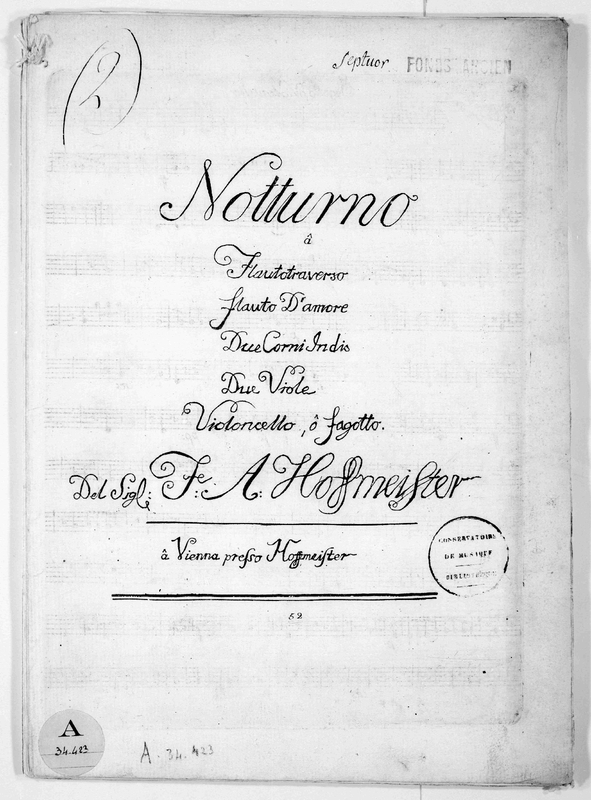 2
Septuor
FONDS ANCIEN
Notturno
â
Flautotraverso
flauto D'amore
Due Corni In dis
Due Viole
Violoncello, ô fagotto.
Del Sigl: Fe: A: Hoffmeister
â Vienna presso Hoffmeister
CONSERVATOIRE
DE MUSIQUE
BIBLIOTHÈQUE
52
A
34.423
A. 34.423